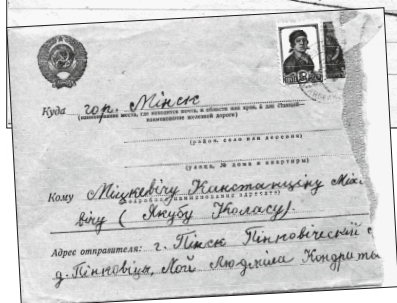 Куда гор. Мінск
(наименование места, где находится почта, и области или края, а для станций—
наименование железной дороги)
(район, село или деревня)
(улица, № дома и квартиры)
Кому Міцкевічу Канстанціну Міх
вічу ( Якубу Коласу).
Адрес отправителя: г. Пінск Пінковіческий с
д. Пінковічы, Лой Людміла Кондрать